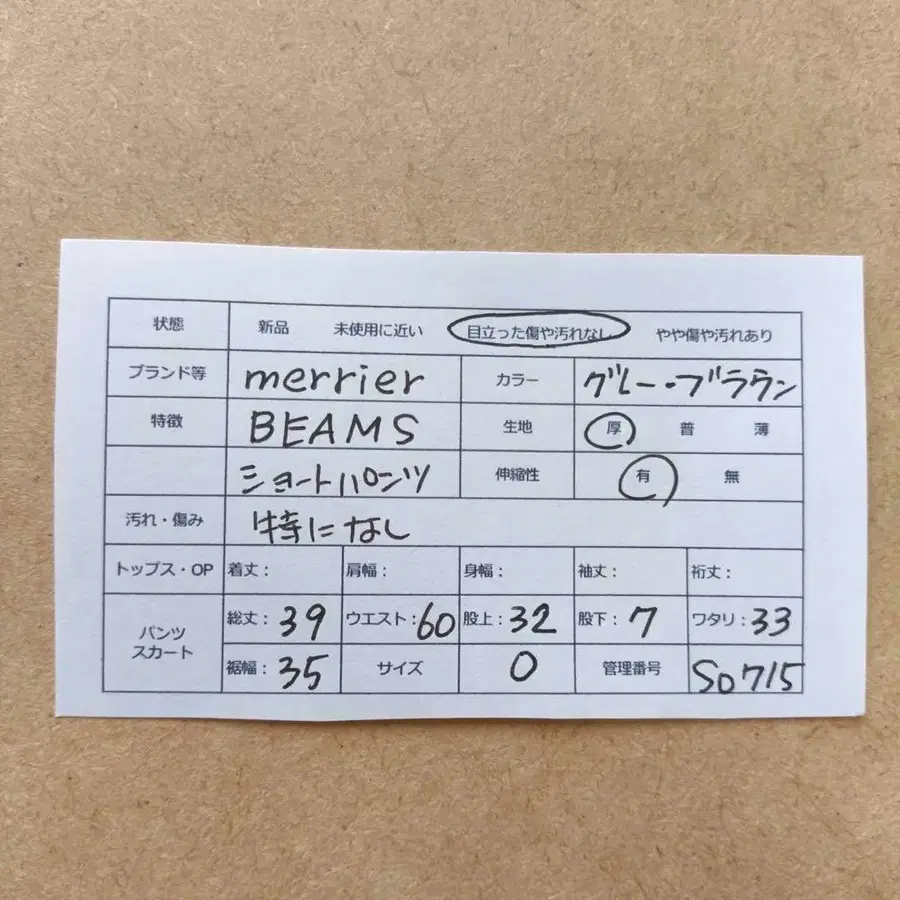 状態 新品 未使用に近い 目立った傷や汚れなし やや傷や汚れあり
ブランド等 merrier カラー グレー・ブラウン
特徴 BEAMS 生地 厚 普 薄
ショートパンツ 伸縮性 有 無
汚れ・傷み 特になし
トップス・OP 着丈: 肩幅: 身幅: 袖丈: 裄丈:
パンツ スカート 総丈: 39 ウエスト: 60 股上: 32 股下: 7 ワタリ: 33
裾幅: 35 サイズ 0 管理番号 S0715